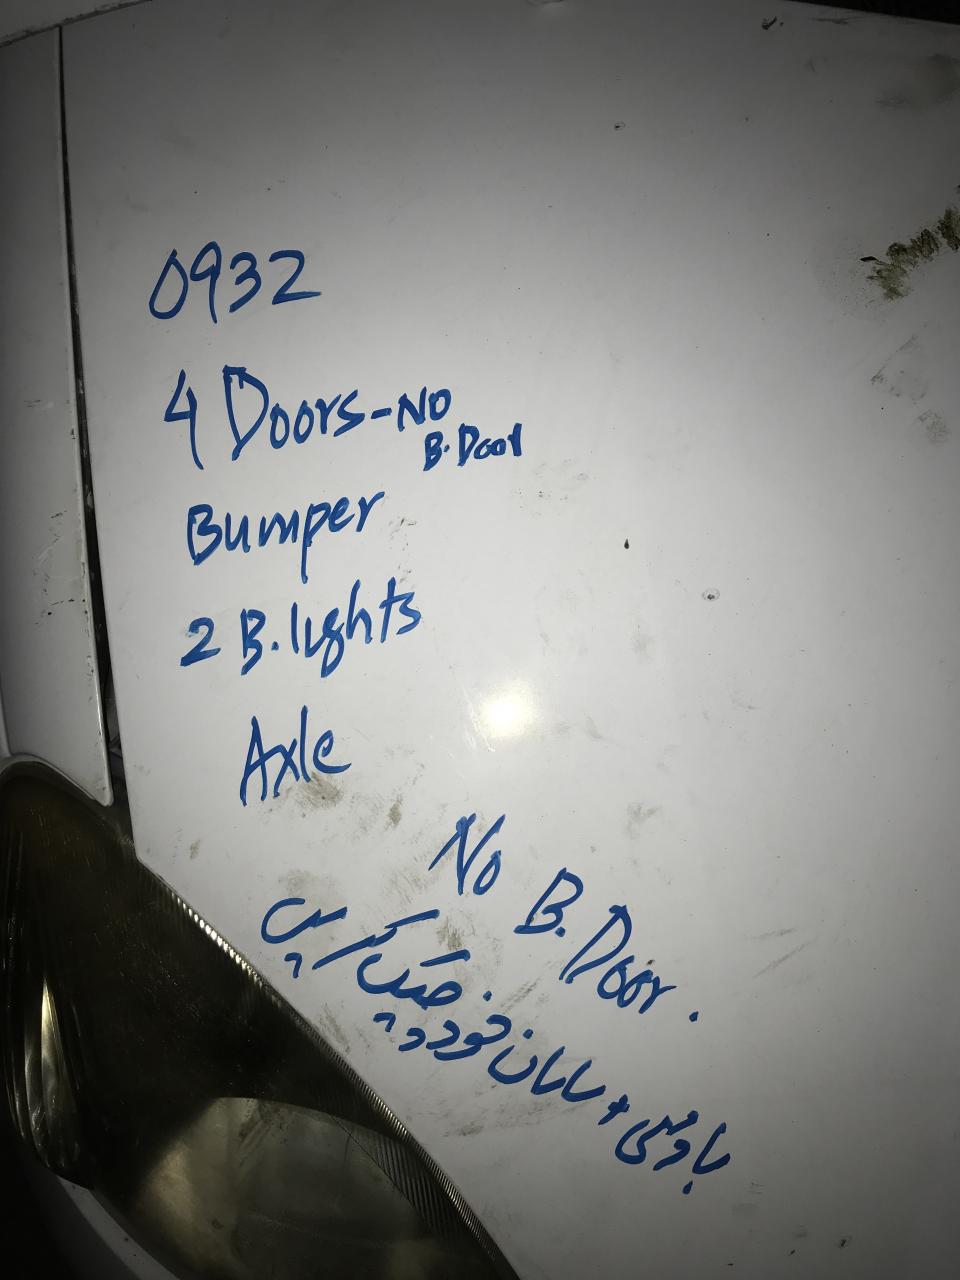 0932
4 Doors - No
B. Door
Bumper
2 B. lights
Axle
No B. Door.
باڈی + سامان خود
چیک کریں